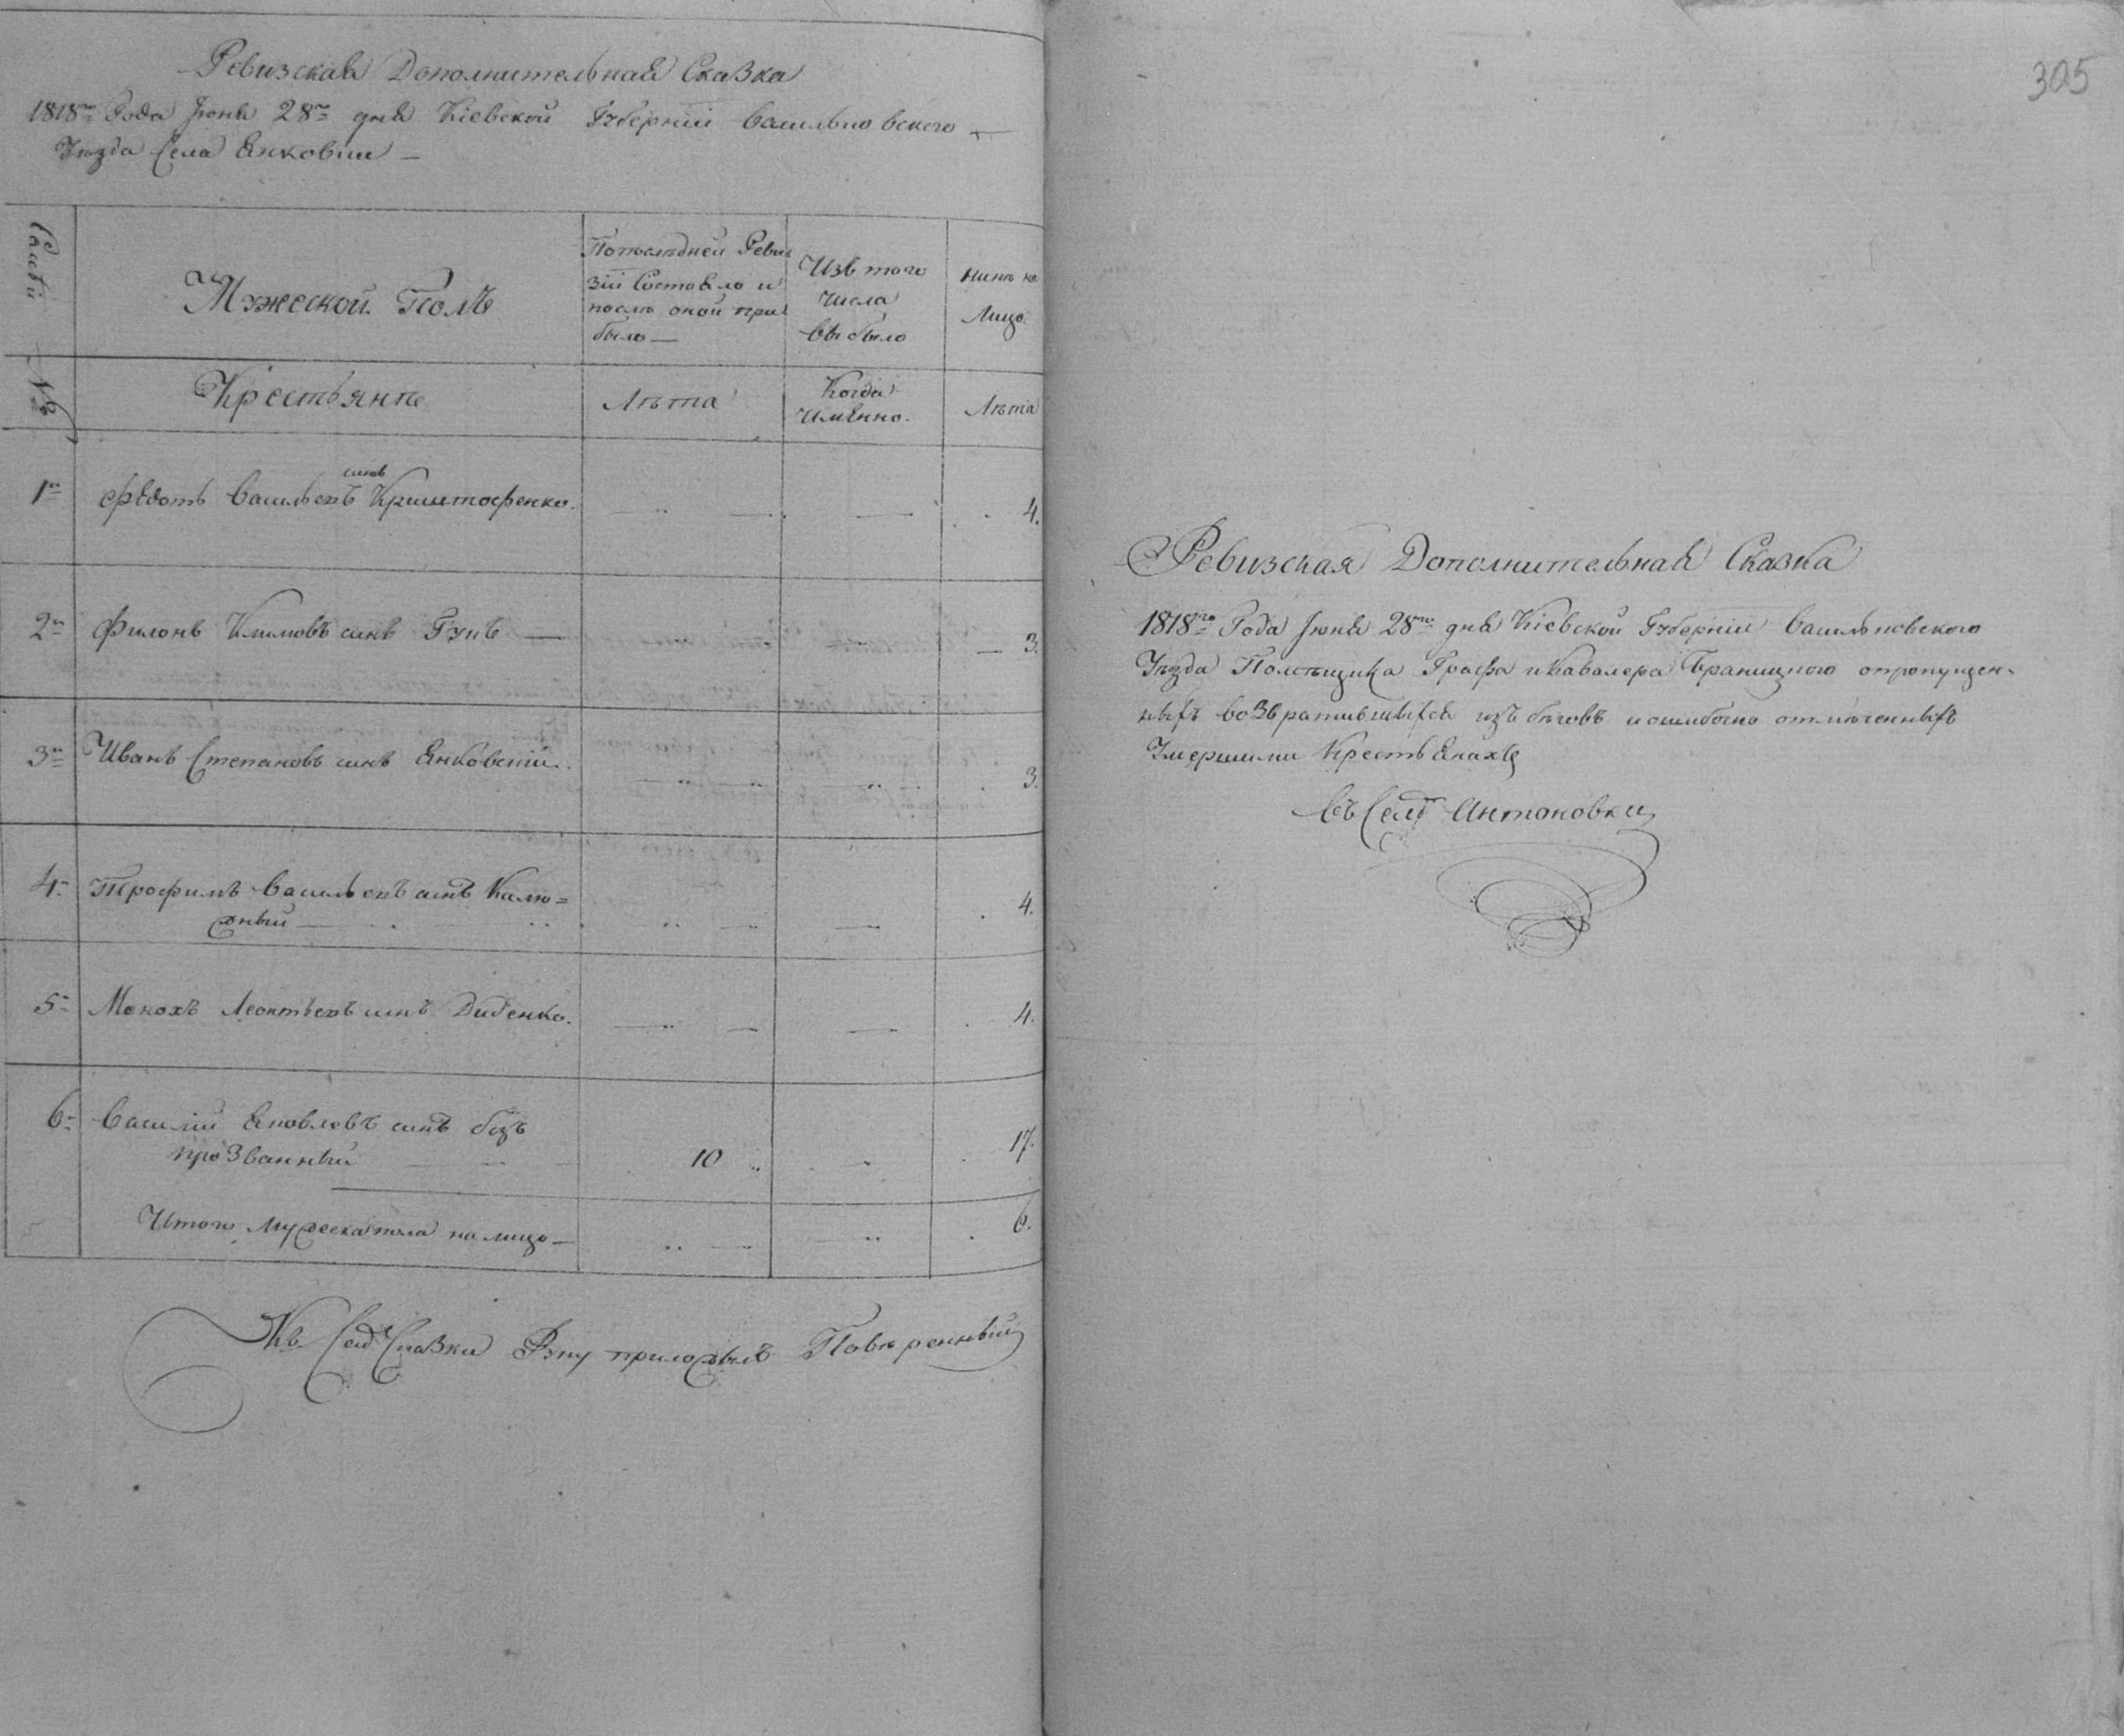 Ревизская Дополнительная Сказка
1818го Года Іюня 28го дня Кіевской Губерніи Васильковского
Уезда Села Янковки
Мужеской Полъ
Попоследней Реви
зіи Состояло и
после оной при
было
Изъ того
числа
выбыло
ныне на
Лицо
№
Крестьяне
Лета
Когда
имянно.
Лета
1й
Федотъ Васильевъ сынъ Криштофенко.
4.
2й
Филонъ Климовъ сынъ Гунъ
3.
3й
Иванъ Степановъ сынъ Янковскій
3.
4й
Трофимъ Васильевъ сынъ Калю=
жный
4.
5й
Леонтьевъ сынъ Диденко.
4.
6й
Василій Яковлевъ сынъ безъ
прозванный
10
17.
Итого мужеска пола налицо
6.
Къ Сей Сказки Руку приложилъ Поверенный
305
Ревизская Дополнительная Сказка
1818го Года Іюня 28го дня Кіевской Губерніи Васильковского
Уезда Помещика Графа и Кавалера Браницкого опропущен-
ныхъ возвратившихся изъ беговъ и ошибочно отмеченныхъ
Умершими Крестьянахъ
Въ Селе Антоновки